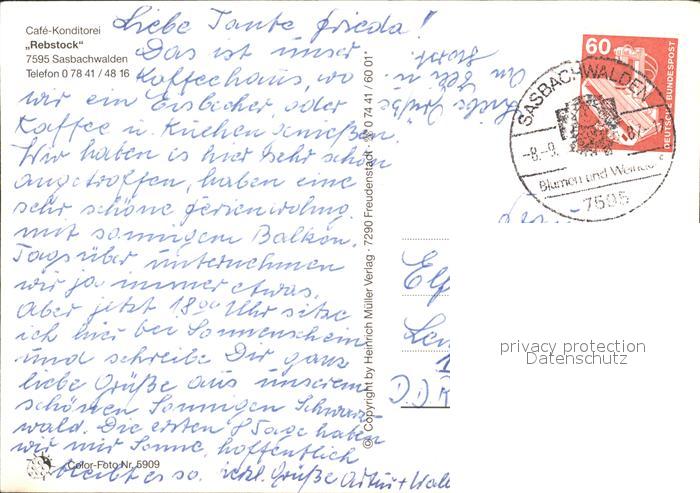 Café-Konditorei
„Rebstock“
7595 Sasbachwalden
Telefon 0 78 41 / 48 16
Liebe Tante Frieda!
Das ist unser
Kaffeehaus, wo
wir ein Eisbecher, oder
Kaffee u. Kuchen genießen.
Wir haben es hier sehr schön
angetroffen, haben eine
sehr schöne Ferienwohng.
mit sonnigem Balkon.
Tagsüber unternehmen
wir ja immer etwas.
Aber jetzt 18⁰⁰ Uhr sitze
ich hier bei Sonnenschein
und schreibe Dir ganz
liebe Grüße aus unserem
schönen Sonnigen Schwarz-
wald. Die ersten 8 Tage haben
wir nur Sonne, hoffentlich
bleibt es so. herzl. Grüße Artur + Wall
Color-Foto Nr. 5909
© Copyright by Heinrich Müller Verlag · 7290 Freudenstadt · ☎ 0 74 41 / 60 01
Liebe Grüße
An Elli u.
60
DEUTSCHE BUNDESPOST
SASBACHWALDEN
-8.-9.
Blumen und Weindorf
7595
Elf
1
D.D.R
privacy protection
Datenschutz